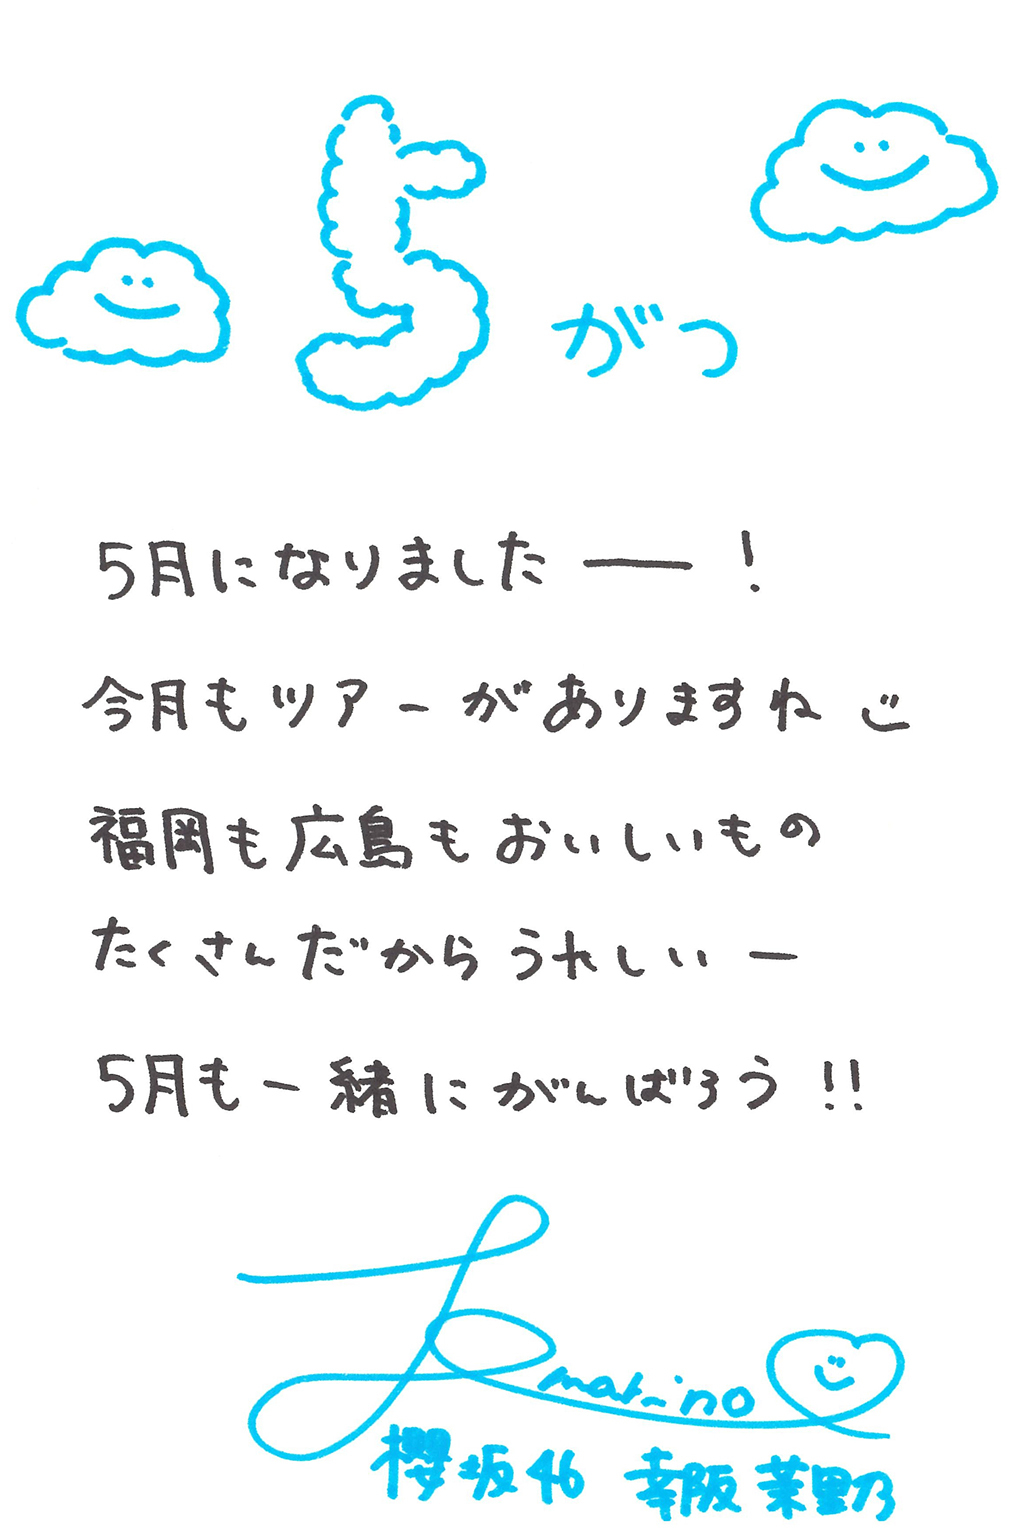 5がつ
5月になりましたー！
今月もツアーがありますね
福岡も広島もおいしいもの
たくさんだからうれしいー
5月も一緒にがんばろう!!
marino
櫻坂46 幸阪茉里乃